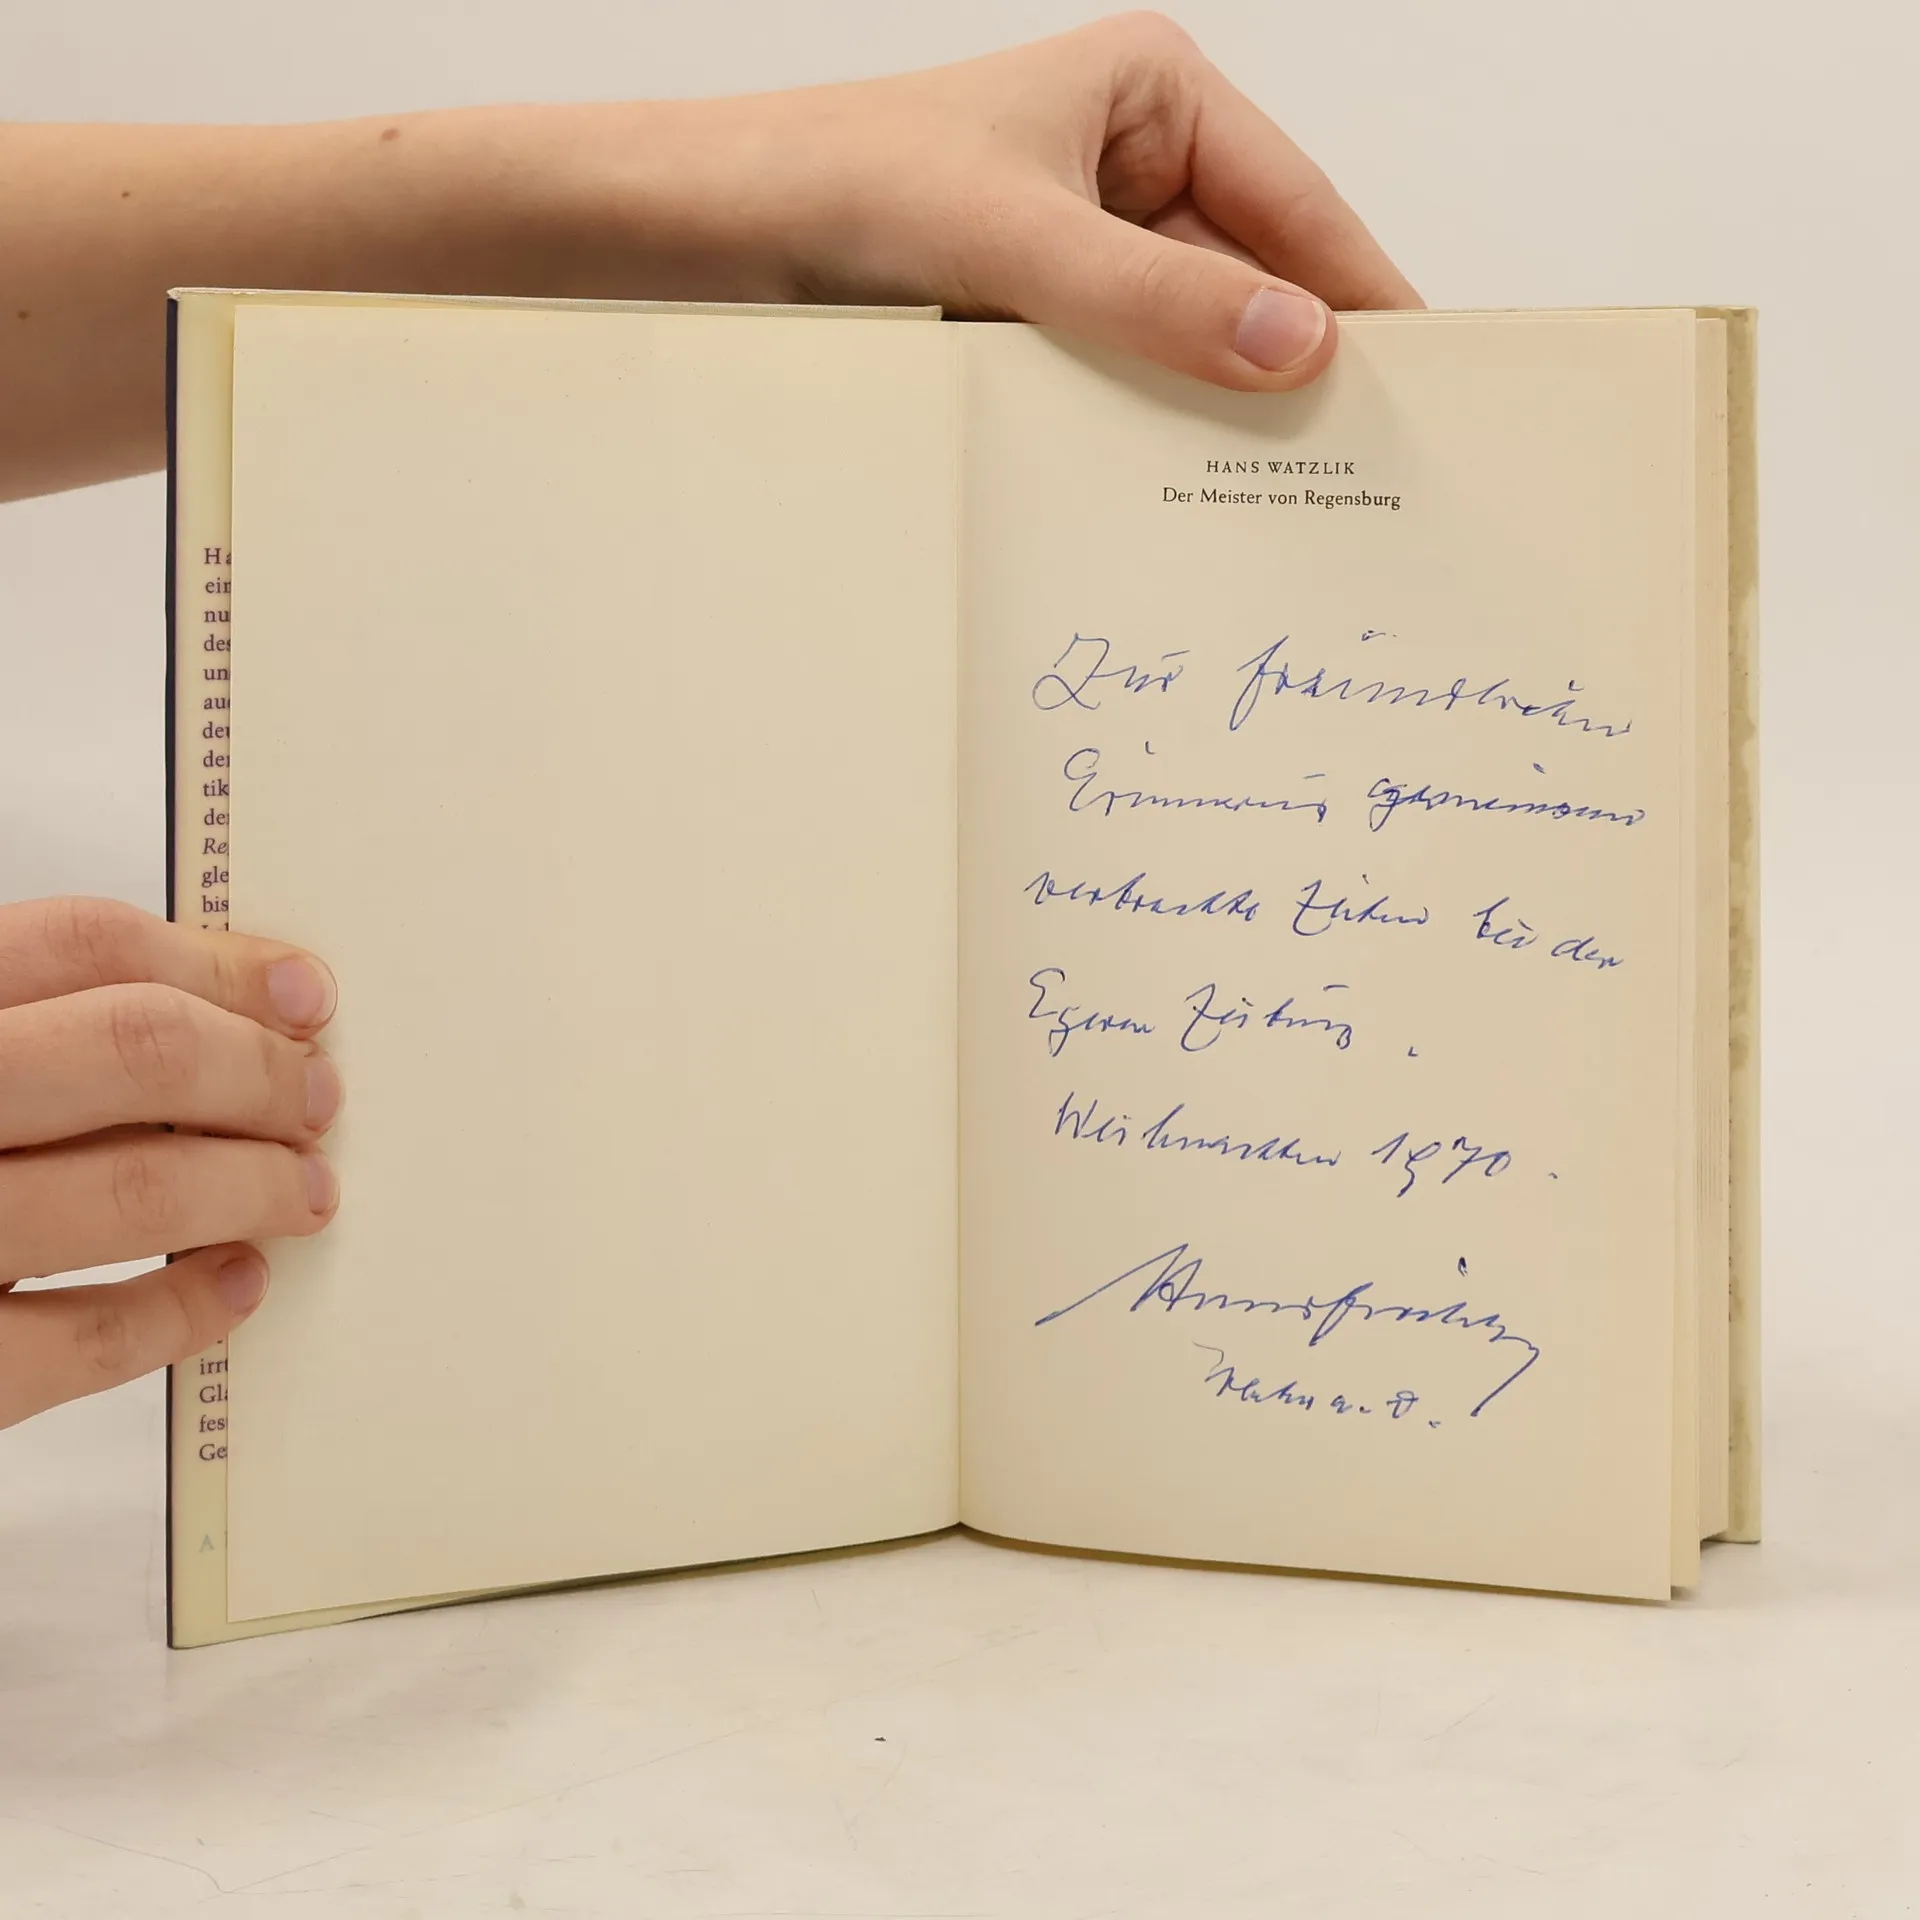 Ha
ein
nu
des
un
au
deu
der
tik
der
Re
gle
bis
irrt
Gla
fes
Ge
A
HANS WATZLIK
Der Meister von Regensburg
Zur freundlichen
Erinnerung gemeinsam
verbrachte Zeiten bei der
Egerer Zeitung.
Weihnachten 1970.